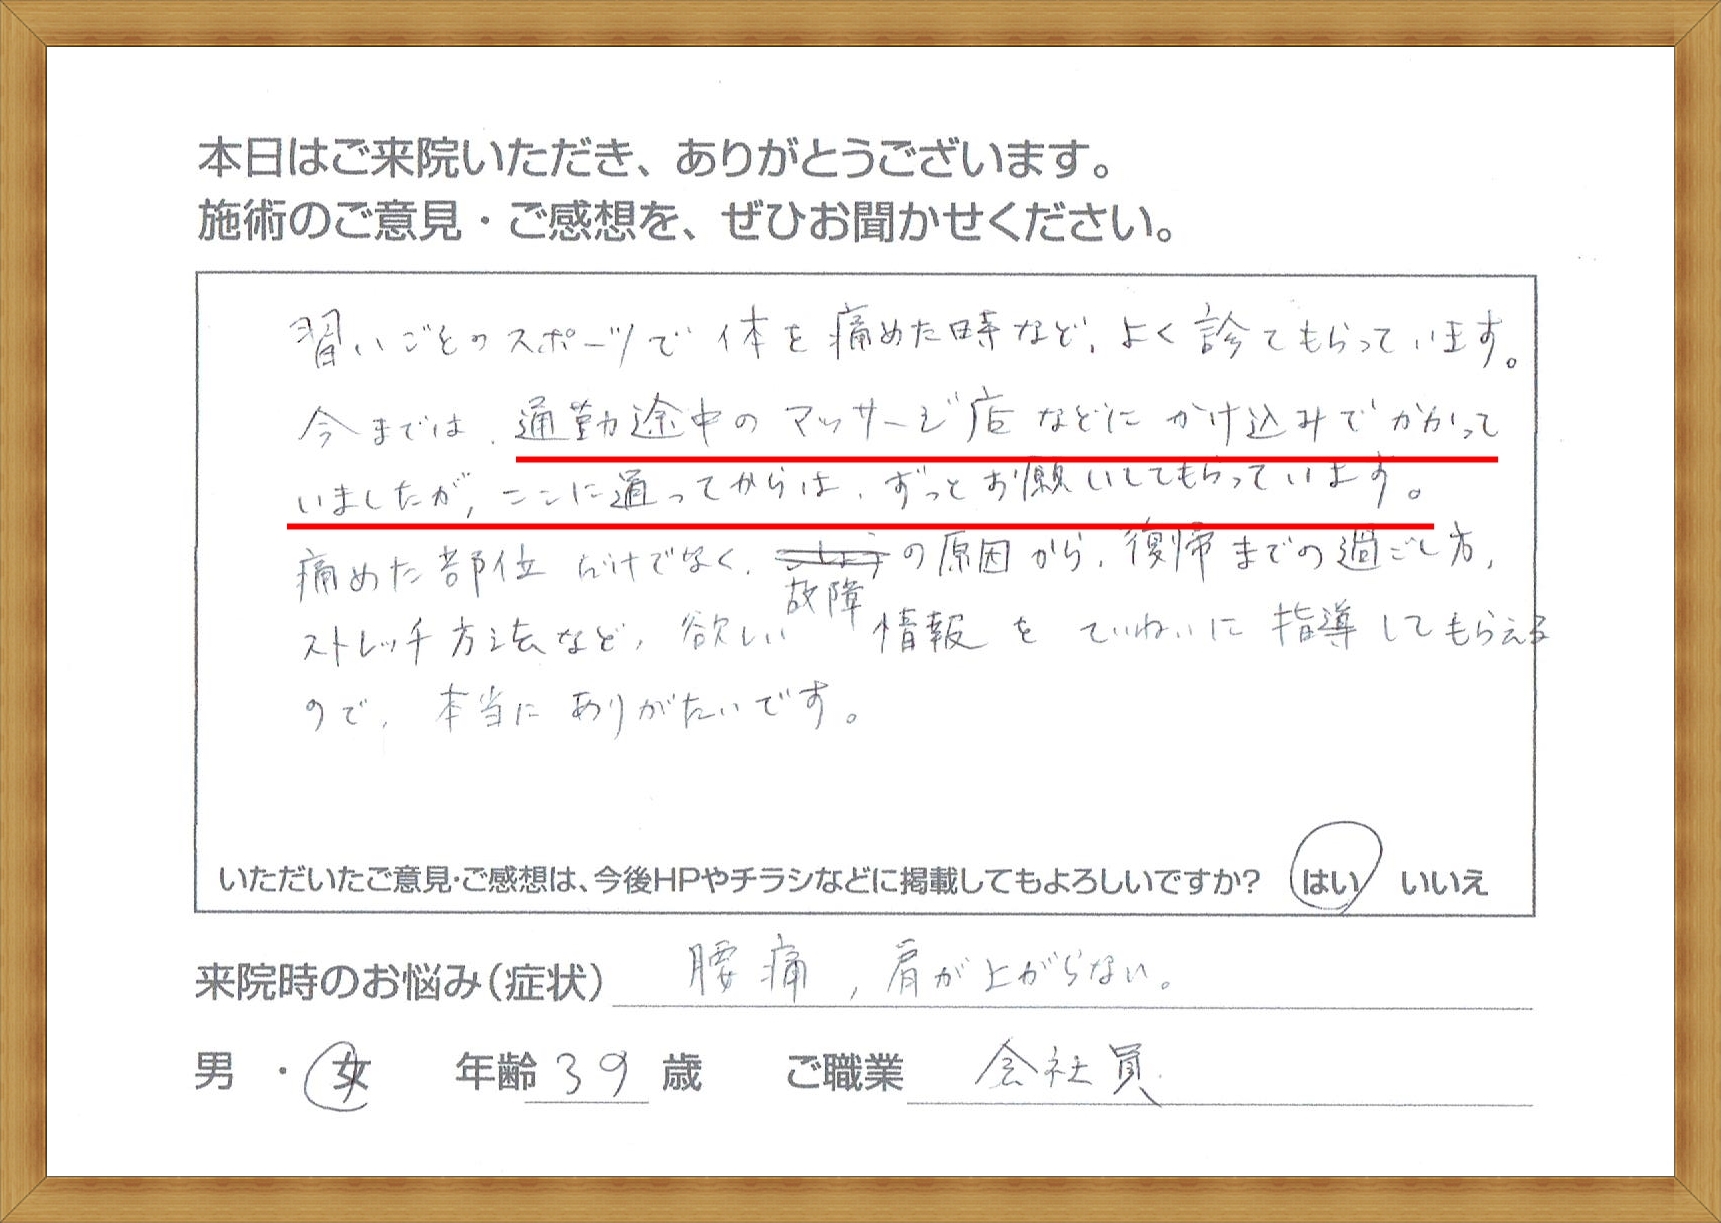 本日はご来院いただき、ありがとうございます。
施術のご意見・ご感想を、ぜひお聞かせください。
習いごとのスポーツで体を痛めた時など、よく診てもらっています。
今までは、通勤途中のマッサージ店などにかけ込みでかかって
いましたが、ここに通ってからは、ずっとお願いしてもらっています。
痛めた部位だけでなく、故障の原因から、復帰までの過ごし方、
ストレッチ方法など、欲しい情報をていねいに指導してもらえる
ので、本当にありがたいです。
いただいたご意見・ご感想は、今後HPやチラシなどに掲載してもよろしいですか? はい いいえ
来院時のお悩み(症状) 腰痛、肩が上がらない。
男・女 年齢 39 歳 ご職業 会社員